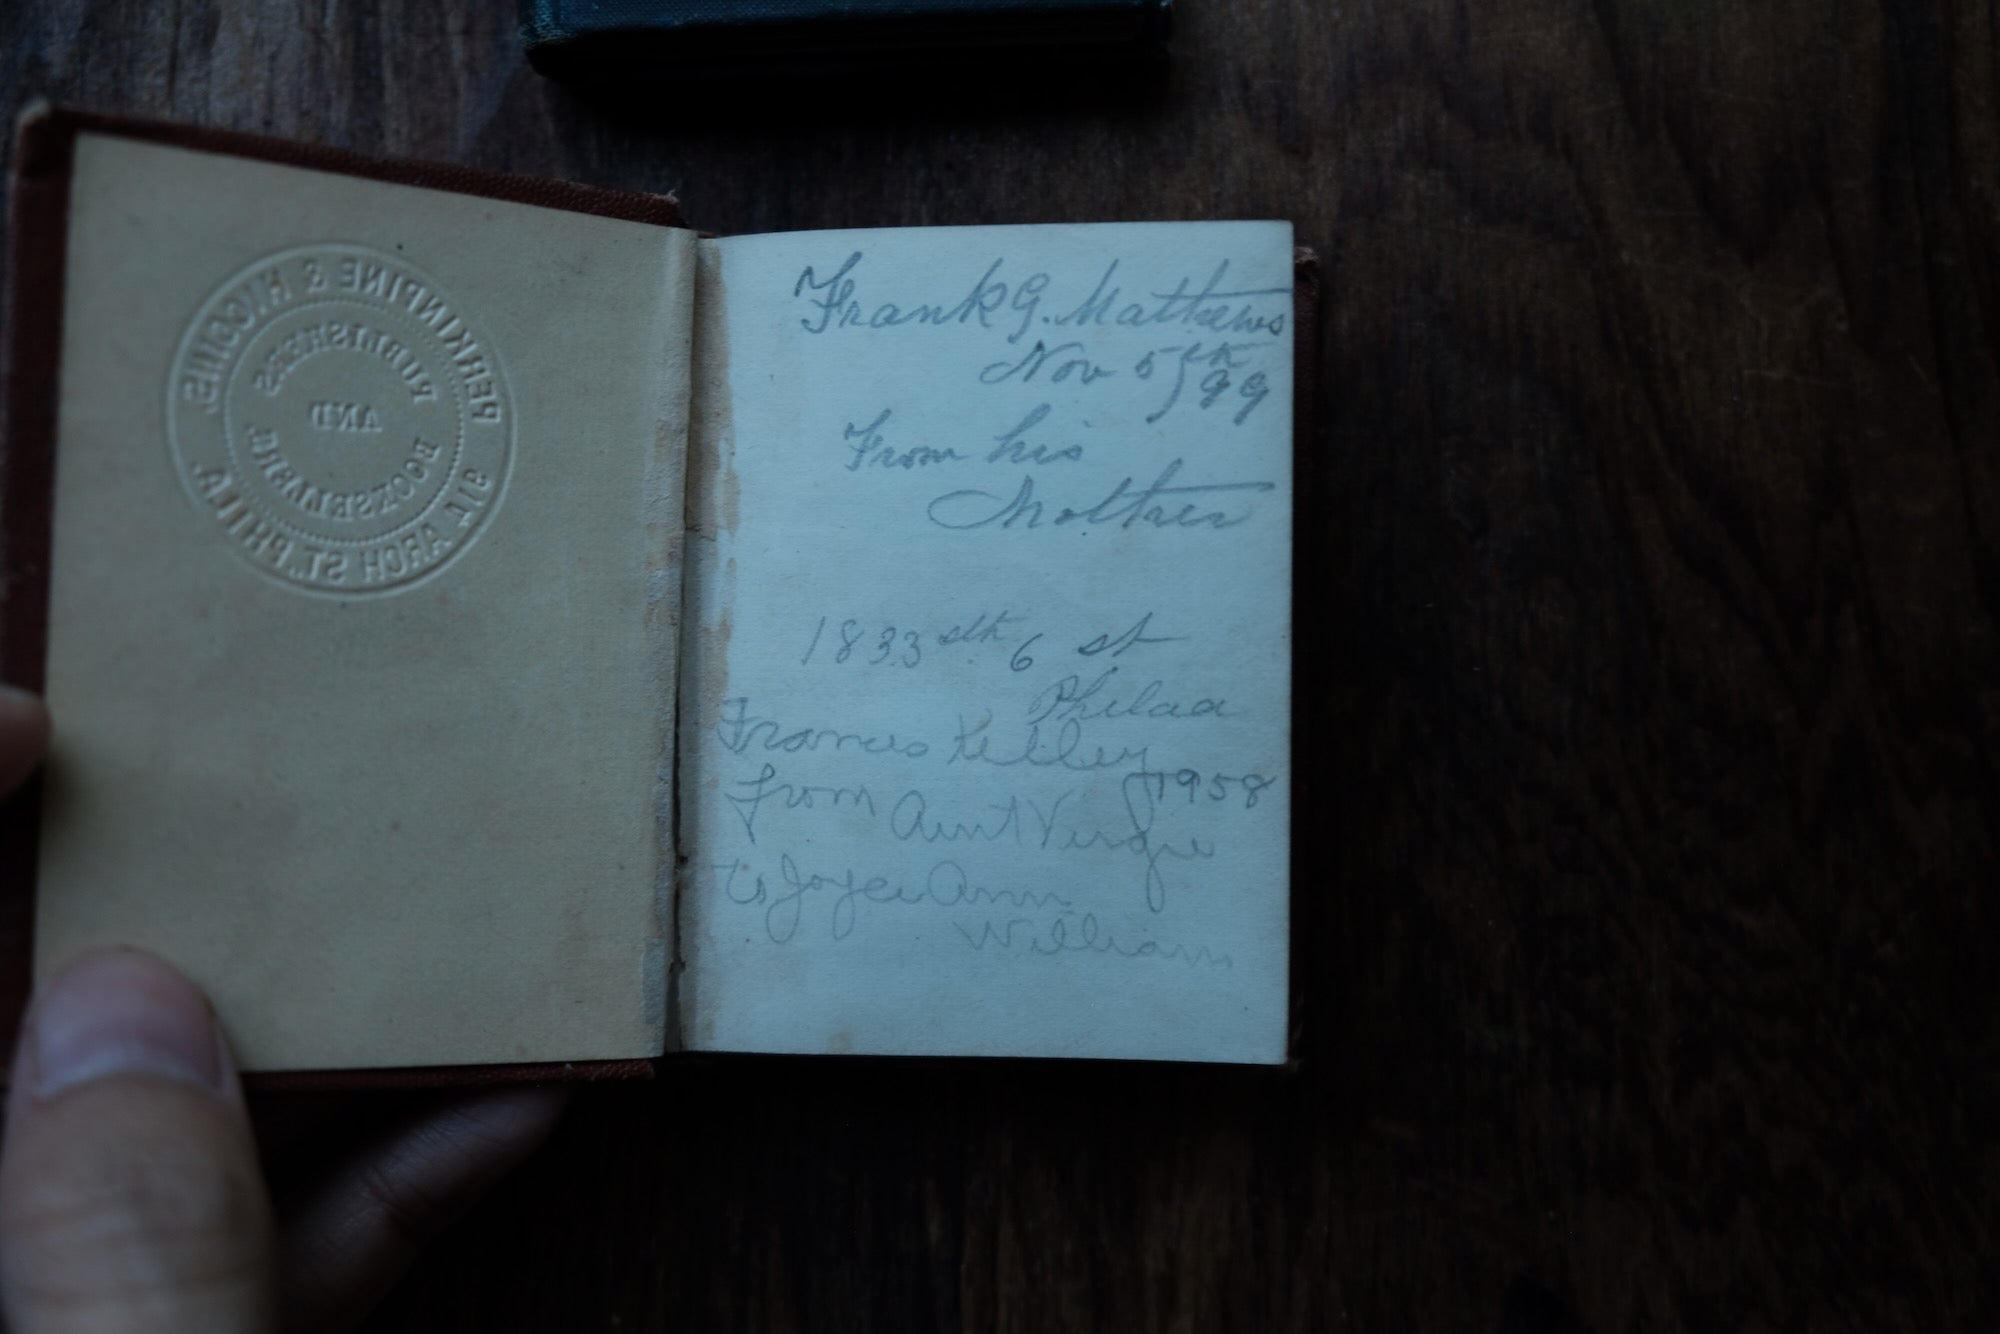 PERKINPINE & HIGGINS.
914 ARCH ST. PHILA.
PUBLISHERS
AND
BOOKSELLERS
Frank G. Mathews
Nov 5th, 99
From his
Mother
1833 sth 6 st
Philaa
Frances Kelley
1958
From Aunt Vergie
to Joyce Ann
William